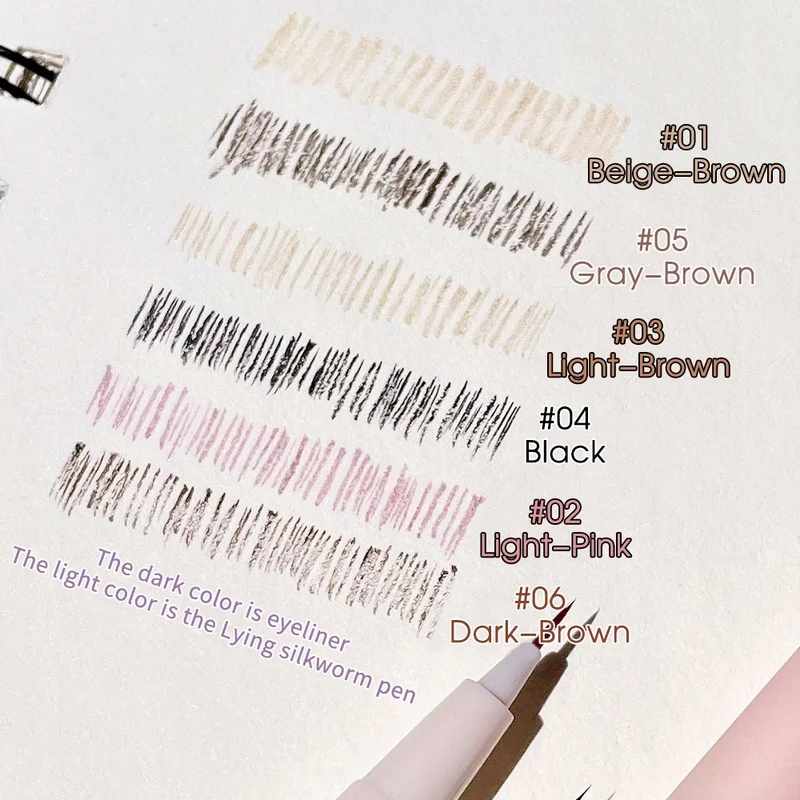 #01
Beige-Brown
#05
Gray-Brown
#03
Light-Brown
#04
Black
#02
Light-Pink
#06
Dark-Brown
The dark color is eyeliner
The light color is the Lying silkworm pen